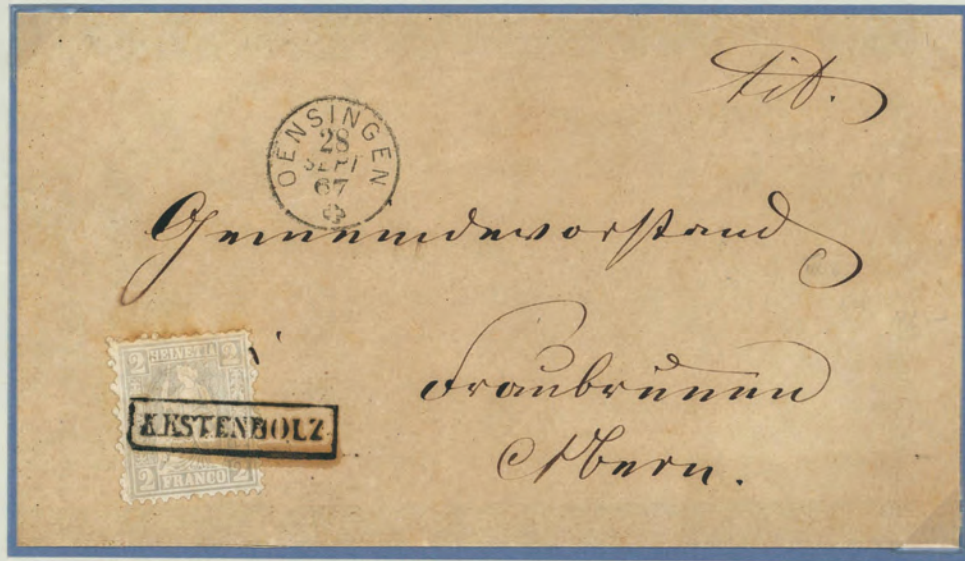 Tit.
OENSINGEN
28
SEPT
67
Gemeindevorstand
Fraubrunnen
Ktbern.
2 HELVETIA 2
KESTENHOLZ
2 FRANCO 2